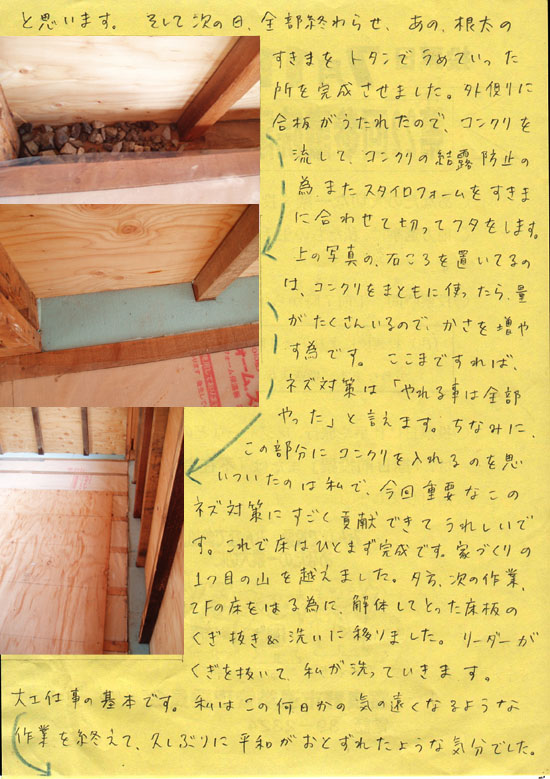 と思います。 そして次の日、全部終わらせ、あの、根太の
すきまをトタンでうめていった
所を完成させました。外側に
合板がうたれたので、コンクリを
流して、コンクリの結露防止の
為、またスタイロフォームをすきま
に合わせて切ってフタをします。
上の写真の、石ころを置いてるの
は、コンクリをまともに使ったら、量
がたくさんいるので、かさを増や
す為です。 ここまですれば、
ネズ対策は「やれる事は全部
やった」と言えます。ちなみに、
この部分にコンクリを入れるのを思
いついたのは私で、今回重要なこの
ネズ対策にすごく貢献できてうれしいで
す。これで床はひとまず完成です。家づくりの
1つ目の山を越えました。夕方、次の作業、
2Fの床をはる為に、解体してとった床板の
くぎ抜き&洗いに移りました。リーダーが
くぎを抜いて、私が洗っていきます。
大工仕事の基本です。私はこの何日かの気の遠くなるような
作業を終えて、久しぶりに平和がおとずれたような気分でした。